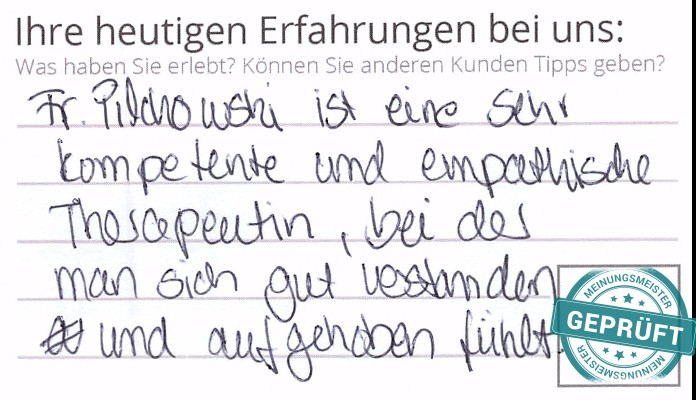 Ihre heutigen Erfahrungen bei uns:
Was haben Sie erlebt? Können Sie anderen Kunden Tipps geben?
Fr. Pilchowski ist eine sehr
kompetente und empathische
Therapeutin, bei der
man sich gut verstanden
und aufgehoben fühlt.
MEINUNGSMEISTER
GEPRÜFT
MEINUNGSMEISTER